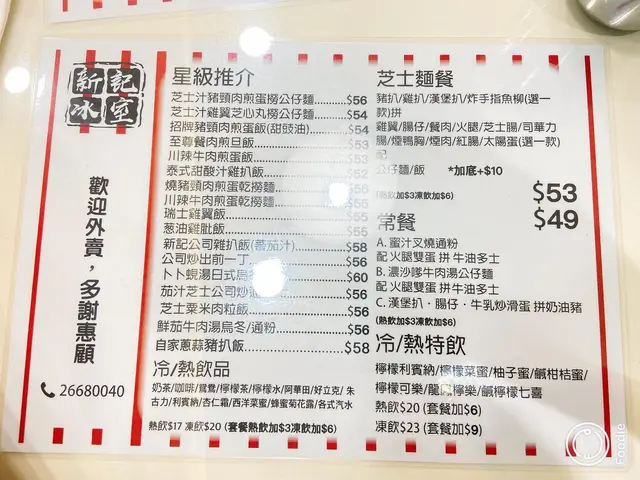 新記
冰室
歡迎外賣，多謝惠顧
26680040
星級推介
芝士汁豬頸肉煎蛋撈公仔麵 $56
芝士汁雞翼芝心丸撈公仔麵 $54
招牌豬頸肉煎蛋飯(甜豉油) $54
至尊餐肉煎旦飯 $53
川辣牛肉煎蛋飯 $53
泰式甜酸汁雞扒飯 $52
燒豬頸肉煎蛋乾撈麵
川辣牛肉煎蛋乾撈麵
瑞士雞翼飯 $55
葱油雞髀飯 $55
新記公司雜扒飯(蕃茄汁) $58
公司炒出前一丁 $56
卜卜蜆湯日式烏冬 $60
茄汁芝士公司炒 $56
芝士粟米肉粒飯 $56
鮮茄牛肉湯烏冬/通粉 $56
自家蔥蒜豬扒飯 $58
冷/熱飲品
奶茶/咖啡/鴛鴦/檸檬茶/檸檬水/阿華田/好立克/ 朱
古力/利賓納/杏仁霜/西洋菜蜜/蜂蜜菊花露/各式汽水
熱飲$17 凍飲$20 (套餐熱飲加$3凍飲加$6)
芝士麵餐
豬扒/雞扒/漢堡扒/炸手指魚柳(選一
款)拼
雞翼/腸仔/餐肉/火腿/芝士腸/司華力
腸/煙鴨胸/煙肉/紅腸/太陽蛋(選一款)
配
公仔麵/飯 *加底+$10
(熱飲加$3凍飲加$6) $53
$49
常餐
A. 蜜汁叉燒通粉
配 火腿雙蛋 拼 牛油多士
B. 濃沙嗲牛肉湯公仔麵
配 火腿雙蛋 拼 牛油多士
C. 漢堡扒．腸仔．牛乳炒滑蛋 拼奶油豬
(熱飲加$3凍飲加$6)
冷/熱特飲
檸檬利賓納/檸檬菜蜜/柚子蜜/鹹柑桔蜜/
檸檬可樂/龍 檸樂/鹹檸檬七喜
熱飲$20 (套餐加$6)
凍飲$23 (套餐加$9)
Foodie